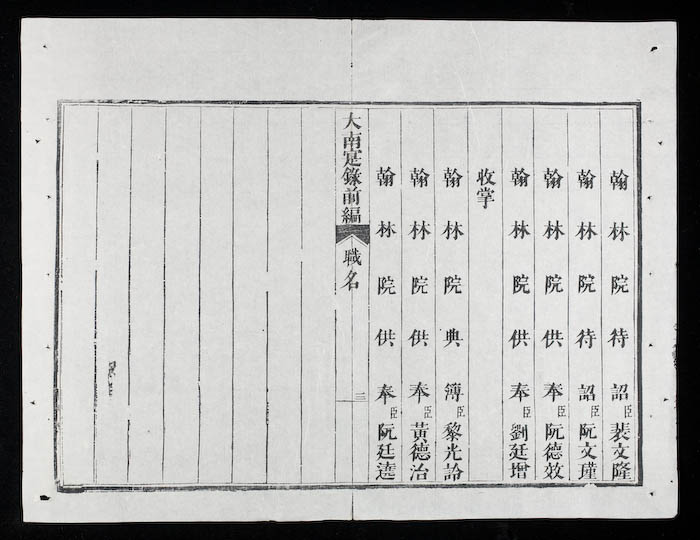 翰林院待詔臣裴文隆
翰林院待詔臣阮文瑾
翰林院供奉臣阮德效
翰林院供奉臣劉廷增
收掌
翰林院典簿臣黎光詅
翰林院供奉臣黃德治
翰林院供奉臣阮廷遶
大南寔錄前編
職名
三